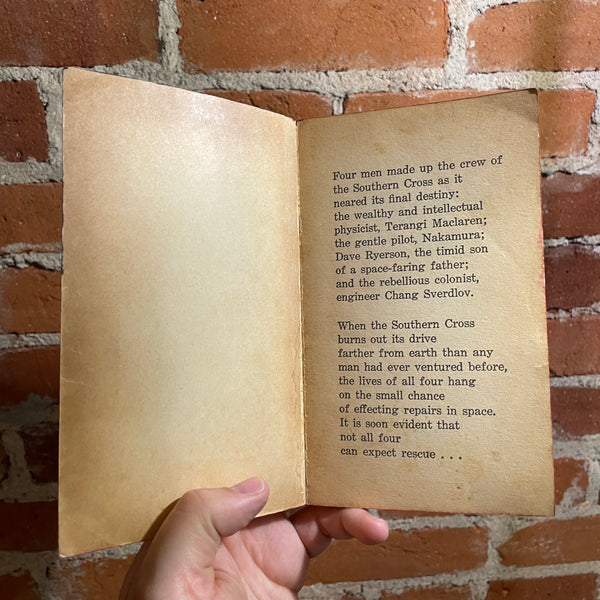 Four men made up the crew of
the Southern Cross as it
neared its final destiny:
the wealthy and intellectual
physicist, Terangi Maclaren;
the gentle pilot, Nakamura;
Dave Ryerson, the timid son
of a space-faring father;
and the rebellious colonist,
engineer Chang Sverdlov.
When the Southern Cross
burns out its drive
farther from earth than any
man had ever ventured before,
the lives of all four hang
on the small chance
of effecting repairs in space.
It is soon evident that
not all four
can expect rescue . . .